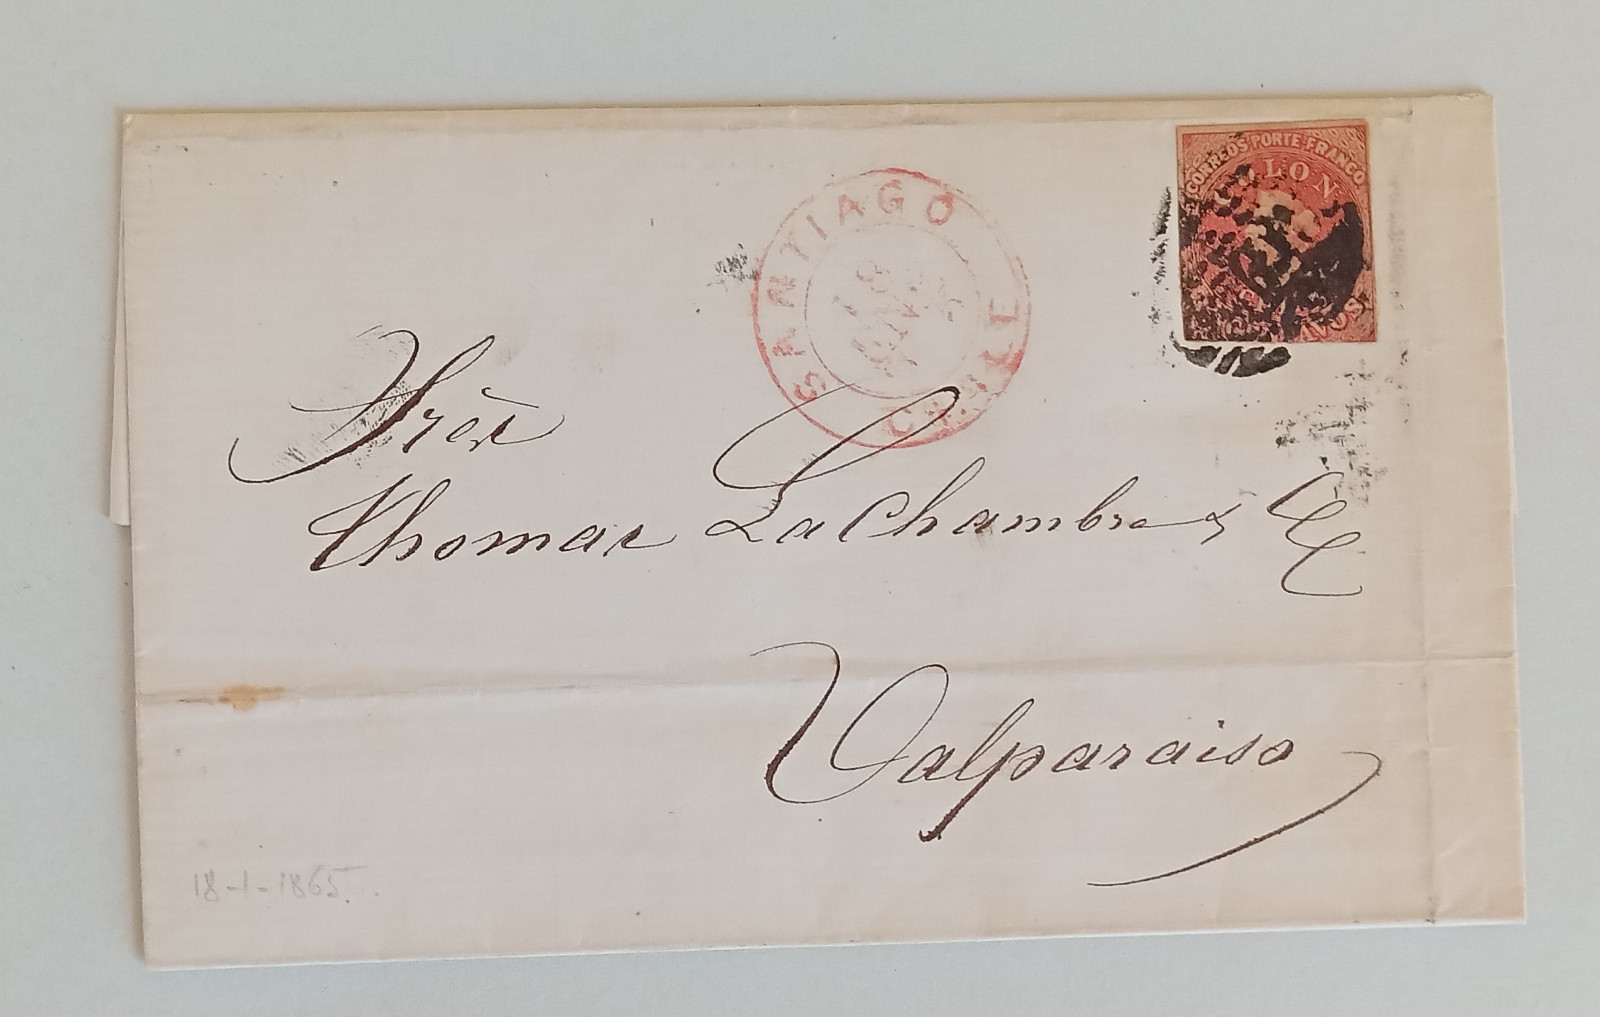 CORREOS PORTE FRANCO
COLON
CENTAVOS
SANTIAGO
18
CHILE
Sres
Thomas La Chambre & Ca
Valparaiso
18-1-1865.